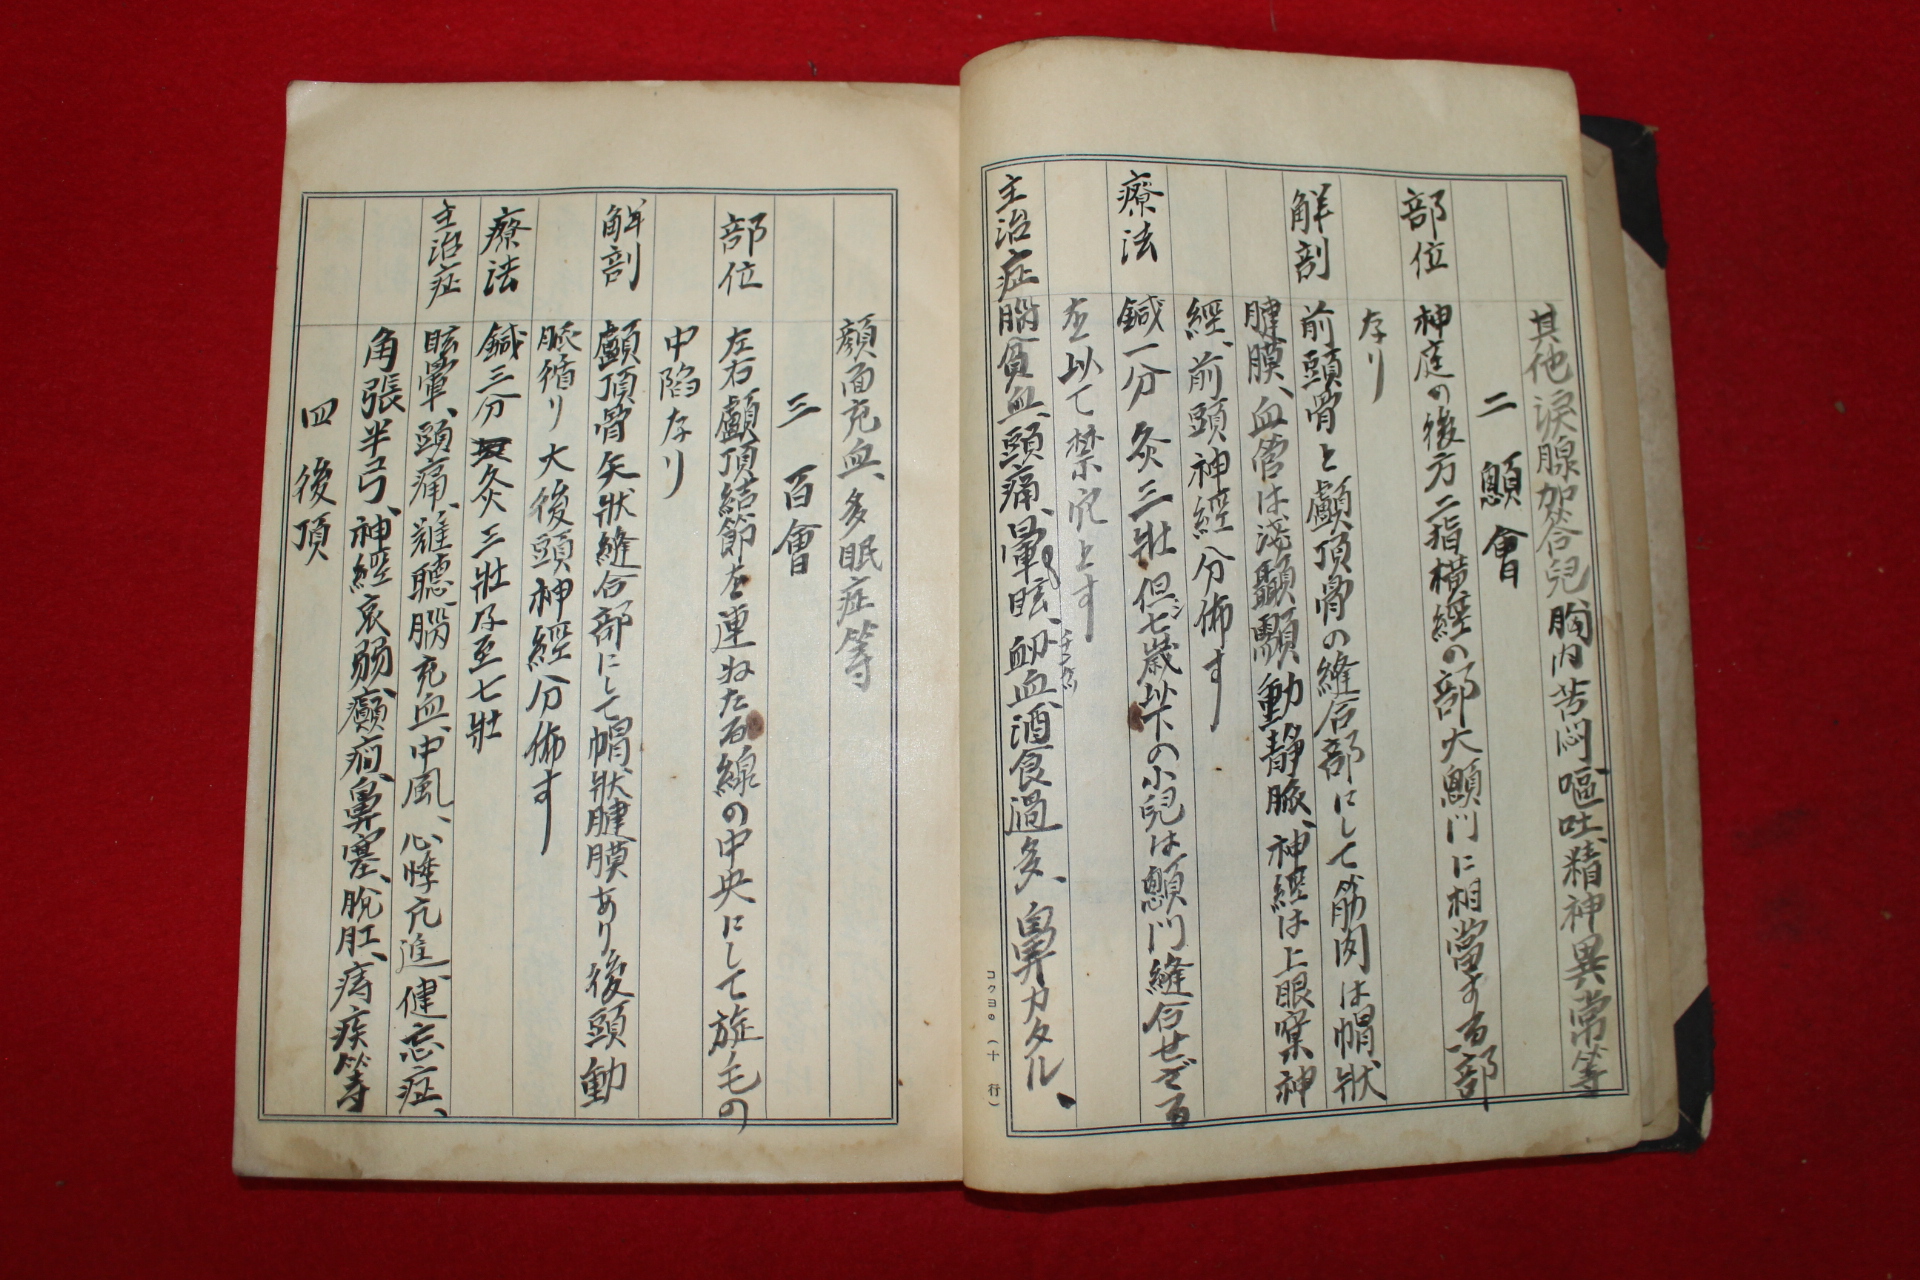 其他涙腺加答兒胸内苦悶嘔吐、精神異常等
二 顖會
部位 神庭の後方二指横經の部大顖門に相當する部
なり
解剖 前頭骨と顱頂骨の縫合部にして筋肉は帽狀
腱膜、血管は淺顳顬動靜脈、神經は上眼窠神
經、前頭神經分佈す
療法 鍼一分 灸三壯 但シ七歳以下の小兒は顖門縫合せざる
を以て禁穴とす
主治症 脳貧血、頭痛、暈眩、衄血、酒食過多、鼻カタル、
コクヨの（十行）
顔面充血、多眠症等
三 百會
部位 左右顱頂結節を連ねたる線の中央にして旋毛の
中陷なり
解剖 顱頂骨矢狀縫合部にして帽狀腱膜あり後頭動
脈循り大後頭神經分佈す
療法 鍼三分 灸三壯乃至七壯
主治症 眩暈、頭痛、難聽、脳充血、中風、心悸亢進、健忘症、
角張半弓、神經衰弱、癲癇、鼻塞、脫肛、痔疾等
四 後頂